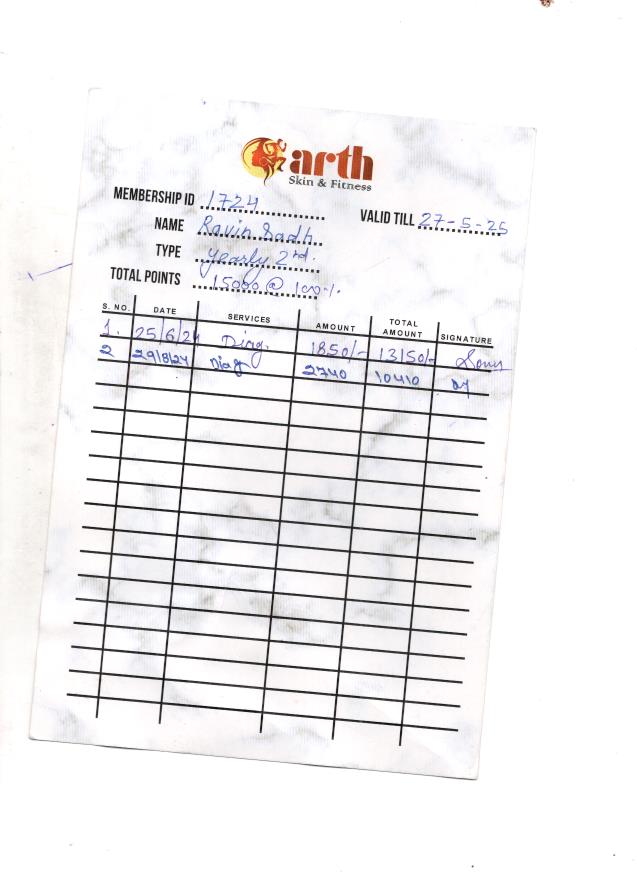 arth
Skin & Fitness
MEMBERSHIP ID 1724
VALID TILL 27-5-25
NAME Ravin Sadh
TYPE Yearly 2nd.
TOTAL POINTS 15000 @ 100%.
S. NO. DATE SERVICES AMOUNT TOTAL AMOUNT SIGNATURE
1. 25/6/24 Diag. 1850/- 13150/-
2 29/8/24 Diag 2740 10410